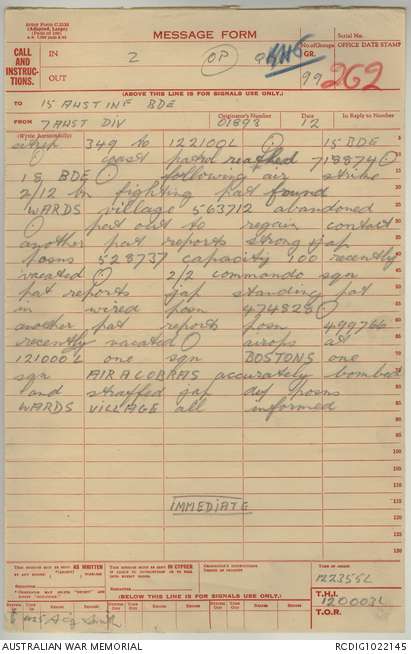 Army Form C.2136
(Adapted, Large)
(Pads of 100)
MESSAGE FORM
Serial No.
CALL
AND
INSTRUC-
TIONS.
IN
2
OP
No. of Groups
GR.
OFFICE DATE STAMP
OUT
99
262
(ABOVE THIS LINE IS FOR SIGNALS USE ONLY.)
TO 15 AUST INF BDE
FROM 7 AUST DIV
Originator's Number
01893
Date
12
In Reply to Number
(Write horizontally)
sitrep 349 to 122100L (.) 15 BDE
(.) coast patrol reached 718874 (.)
18 BDE (.) following air strike
2/12 bn fighting pat found
WARDS village 563712 abandoned
(.) pat out to regain contact
another pat reports strong jap
posns 528737 capacity 100 recently
vacated (.) 2/2 commando sqn
pat reports jap standing pat
in wired posn 474828 (.)
another pat reports posn 499766
recently vacated (.) airops at
121000L one sqn BOSTONS one
sqn AIRACOBRAS accurately bombed
and straffed jap def posns
WARDS VILLAGE all informed
IMMEDIATE
THIS MESSAGE MAY BE SENT AS WRITTEN
BY ANY MEANS
THIS MESSAGE MUST BE SENT IN CYPHER
ORIGINATOR'S INSTRUCTIONS
DEGREE OF PRIORITY
TIME OF ORIGIN
122355L
(BELOW THIS LINE IS FOR SIGNALS USE ONLY.)
T.H.I.
T.O.R.
AUSTRALIAN WAR MEMORIAL
RCDIG1022145